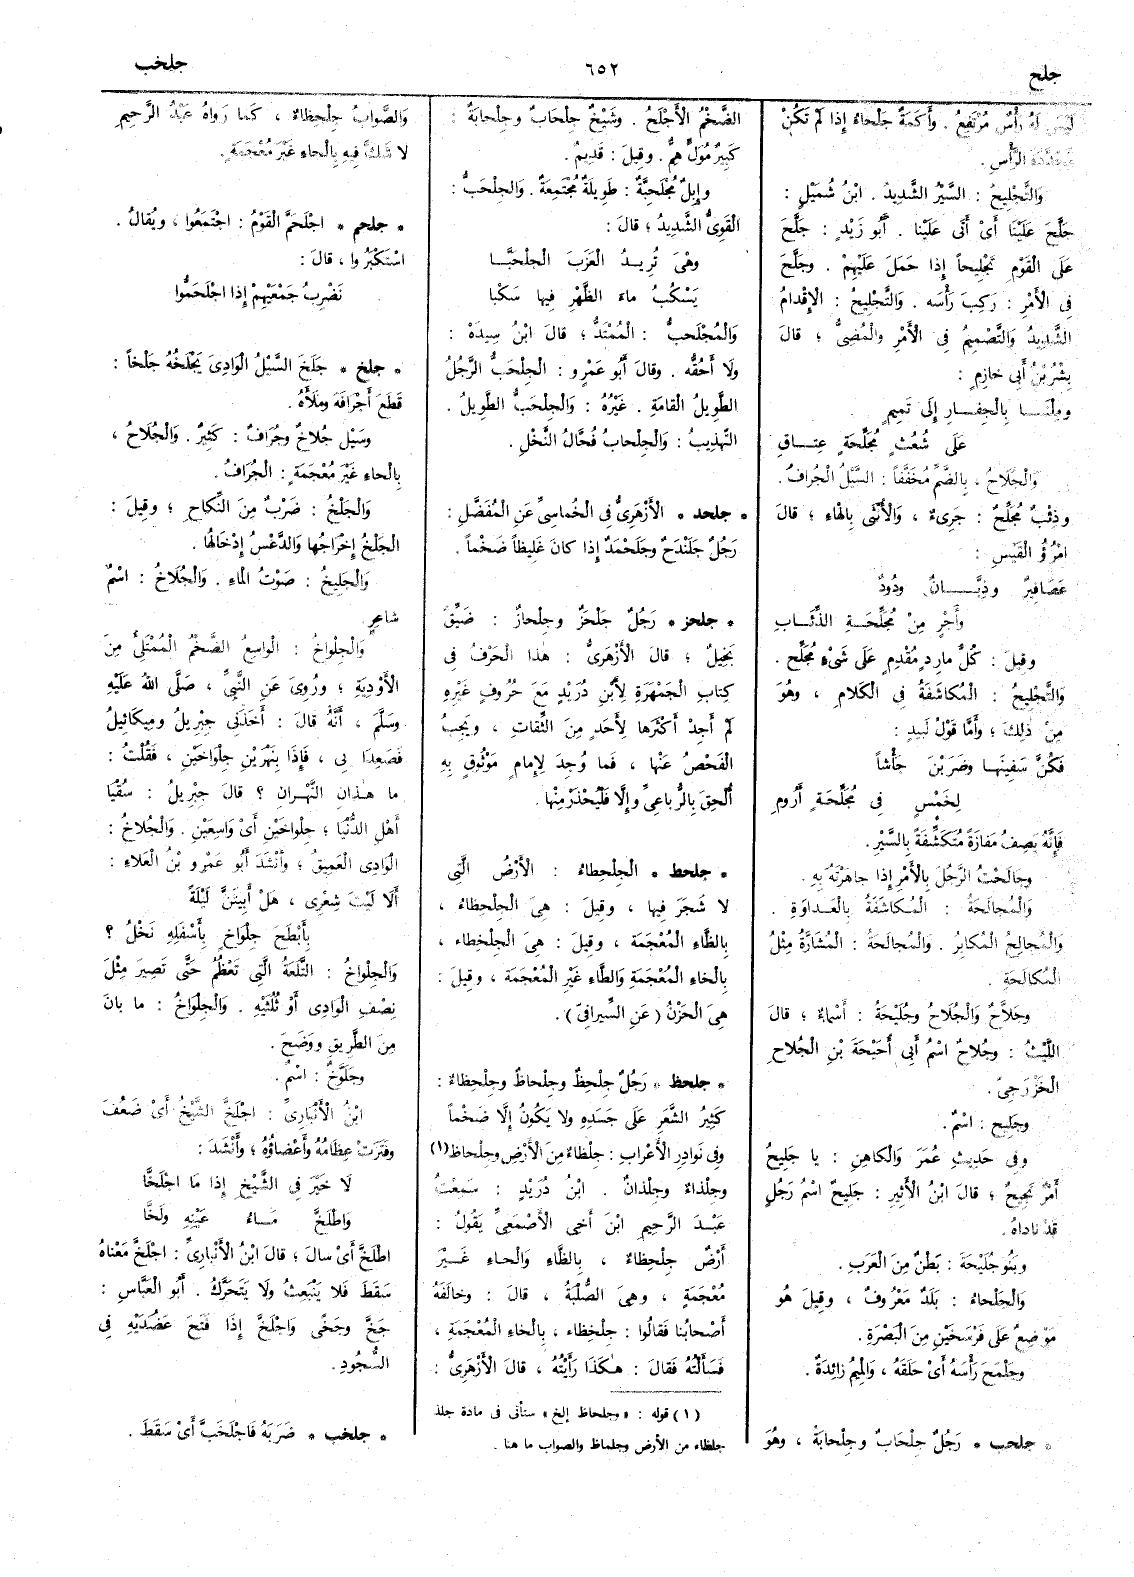 جلح
٦٥٢
جلخب
لَيْسَ لَهُ رَأْسٌ مُرْتَفِعٌ . وَأَكَمَةٌ جَلْحاءُ إِذا لَمْ تَكُنْ
مُحَدَّدَةَ الرَّأْسِ .
وَالتَّجْلِيحُ : السَّيْرُ الشَّدِيدُ . ابْنُ شُمَيْلٍ :
جَلَّحَ عَلَيْنا أَىْ أَتَى عَلَيْنا . أَبُو زَيْدٍ : جَلَّحَ
عَلَى الْقَوْمِ تَجْلِيحاً إِذا حَمَلَ عَلَيْهِمْ . وجَلَّحَ
فِى الْأَمْرِ : رَكِبَ رَأْسَه . وَالتَّجْلِيحُ : الإِقْدامُ
الشَّدِيدُ وَالتَّصْمِيمُ فِى الْأَمْرِ والْمُضِىُّ ؛ قالَ
بِشْرُ بْنُ أَبِى خازِمٍ :
ومِلْنَـــا بِالْجِفـارِ إِلَى تَمِيمٍ
عَلَى شُعُثٍ مُجَلِّحَةٍ عِتـــاقِ
وَالْجُلَاحُ ، بِالضَّمِّ مُخَفَّفاً : السَّيْلُ الْجُرافُ .
وذِئْبٌ مُجَلِّحٌ : جَرِىءٌ ، وَالْأُنْثَى بِالْهاءِ ؛ قالَ
امْرُؤُ الْقَيْسِ :
عَصَافِيرٌ وذِبَّـــــانٌ ودُودٌ
وأَجْرٍ مِنْ مُجَلِّحَـةِ الذِّئَـابِ
وقِيلَ : كُلُّ مارِدٍ مُقْدِمٍ عَلَى شَىْءٍ مُجَلِّح .
وَالتَّجْلِيحُ : الْمُكاشَفَةُ فِى الْكَلامِ ، وهُوَ
مِنْ ذٰلِكَ ؛ وأَمَّا قَوْلُ لَبِيدٍ :
فَكُنَّ سَفِينَهـا وضَرَبْنَ جَأْشاً
لِخَمْسٍ فِى مُجَلِّحَةٍ أَزُومِ
فَإِنَّهُ يَصِفُ مَفازَةً مُتَكَشِّفَةً بِالسَّيْرِ .
وجَالَحْتُ الرَّجُلَ بِالْأَمْرِ إِذا جاهَرْتَهُ بِهِ .
وَالْمُجالَحَةُ : الْمُكاشَفَةُ بِالْعَداوَةِ .
وَالْمُجالِحُ الْمُكابِرُ . وَالْمُجالَحَةُ : الْمُشارَّةُ مِثْلُ
الْمُكالَحَةِ .
وجَلَّاحٌ وَالْجُلَاحُ وجُلَيْحَةُ : أَسْماءٌ ؛ قالَ
اللَّيْثُ : وجُلاحٌ اسْمُ أَبِى أُحَيْحَةَ بْنِ الْجُلَاحِ
الْخَزْرَجِىِّ .
وجَلِيح : اسْمٌ .
وفِى حَدِيثِ عُمَرَ وَالْكاهِنِ : يا جَلِيحُ
أَمْرٌ نَجِيحٌ ؛ قالَ ابْنُ الْأَثِيرِ : جَلِيحٌ اسْمُ رَجُلٍ
قَدْ ناداهُ .
وبَنُو جُلَيْحَةَ : بَطْنٌ مِنَ الْعَرَبِ .
وَالْجَلْحاءُ : بَلَدٌ مَعْرُوفٌ ، وقِيلَ هُوَ
مَوْضِعٌ عَلَى فَرْسَخَيْنِ مِنَ الْبَصْرَةِ .
وجَلْمَحَ رَأْسَهُ أَىْ حَلَقَهُ ، وَالْمِيمُ زائِدَةٌ .
* جلحب * رَجُلٌ جِلْحَابٌ وجِلْحابَةٌ ، وهُوَ
الضَّخْمُ الأَجْلَحُ . وشَيْخٌ جِلْحَابٌ وجِلْحابَةٌ :
كَبِيرٌ مُوَلٍّ هِمٌّ . وقِيلَ : قَدِيمٌ .
وإِبِلٌ مُجْلَحِبَّةٌ : طَوِيلَةٌ مُجْتَمِعَةٌ . وَالْجِلْحَبُّ :
الْقَوِىُّ الشَّدِيدُ ؛ قالَ :
وهْىَ تُرِيـدُ الْعَزَبَ الْجِلْحَبَّـا
يَسْكُبُ ماءَ الظَّهْرِ فِيها سَكْبا
وَالْمُجْلَحِبُّ : الْمُمْتَدُّ ؛ قالَ ابْنُ سِيدَهْ :
ولَا أَحُقُّه . وقالَ أَبُو عَمْرٍو : الْجِلْحَبُّ الرَّجُلُ
الطَّوِيلُ الْقامَةِ . غَيْرُهُ : وَالْجِلْحَبُّ الطَّوِيلُ .
التَّهْذِيبُ : وَالْجِلْحابُ فُحَّالُ النَّخْلِ .
* جلحد * الْأَزْهَرِىُّ فِى الْخُماسِىِّ عَنِ الْمُفَضَّلِ :
رَجُلٌ جَلَنْدَحٌ وجَلَحْمَدٌ إِذا كانَ غَلِيظاً ضَخْماً .
* جلحز * رَجُلٌ جَلْحَزٌ وجِلْحازٌ : ضَيِّقٌ
بَخِيلٌ ؛ قالَ الْأَزْهَرِىُّ : هٰذا الْحَرْفُ فِى
كِتابِ الْجَمْهَرَةِ لِأَبْنِ دُرَيْدٍ مَعَ حُرُوفٍ غَيْرِهِ
لَمْ أَجِدْ أَكْثَرَها لِأَحَدٍ مِنَ الثِّقاتِ ، ويَجِبُ
الْفَحْصُ عَنْها ، فَما وُجِدَ لِإِمامٍ مَوْثُوقٍ بِهِ
أُلْحِقَ بِالرُّباعِىِّ وإِلَّا فَلْيُحْذَرْ مِنْها .
* جلحط * الْجِلْحِطاءُ : الْأَرْضُ الَّتِى
لا شَجَرَ فِيها ، وقِيلَ : هِىَ الْجِلْحِظاءُ ،
بِالظَّاءِ الْمُعْجَمَةِ ، وقِيلَ : هِىَ الْجِلْخِطاء ،
بِالْخاءِ الْمُعْجَمَةِ وَالطَّاءِ غَيْرِ الْمُعْجَمَة ، وقِيلَ :
هِىَ الْحَزْنُ ( عَنِ السِّيرافِىّ ) .
* جلحظ * رَجُلٌ جِلْحِظٌ وجِلْحاظٌ وجِلْحِظاءٌ :
كَثِيرُ الشَّعَرِ عَلَى جَسَدِهِ ولا يَكُونُ إِلَّا ضَخْماً
وفِى نَوادِرِ الْأَعْرابِ : جِلْظاءٌ مِنَ الْأَرْضِ وجِلْحاظ (١)
وجِلْذاءٌ وجِلْذانٌ . ابْنُ دُرَيْدٍ : سَمِعْتُ
عَبْـدَ الرَّحِيمِ ابْنَ أَخِى الْأَصْمَعِىِّ يَقُولُ :
أَرْضٌ جِلْحِظاءٌ ، بِالظَّاءِ وَالْحـاءِ غَـيْرَ
مُعْجَمَةٍ ، وهِىَ الصُّلْبَةُ ، قالَ : وخالَفَهُ
أَصْحابُنا فَقالُوا : جِلْخِظاء ، بِالْخاءِ الْمُعْجَمَةِ ،
فَسَأَلْتُهُ فَقالَ : هٰكَذَا رَأَيْتُهُ ، قالَ الْأَزْهَرِىُّ :
( ١ ) قوله : «وجلحاظ إلخ» ستأتى فى مادة جلذ
جلظاء من الأرض وجلماظ والصواب ما هنا .
وَالصَّوابُ جِلْحِظاءٌ ، كَما رَواهُ عَبْدُ الرَّحِيمِ
لا شَكَّ فِيهِ بِالْحاءِ غَيْرَ مُعْجَمَةٍ .
* جلحم * اجْلَحَمَّ الْقَوْمُ : اجْتَمَعُوا ، ويُقالُ .
اسْتَكْبَرُوا ، قالَ :
نَضْرِبُ جَمْعَيْهِمْ إِذا اجْلَحَمُّوا
* جلخ * جَلَخَ السَّيْلُ الْوادِىَ يَجْلَخُهُ جَلْخاً :
قَطَعَ أَجْرافَهُ ومَلَأَهُ .
وسَيْل جُلاخٌ وجُرافٌ : كَثِيرٌ . وَالْجُلَاحُ ،
بِالْحاءِ غَيْرَ مُعْجَمَةٍ : الْجُرافُ .
وَالْجَلْخُ : ضَرْبٌ مِنَ النِّكاحِ ؛ وقِيلَ :
الْجَلْخُ إِخْراجُها وَالدَّعْسُ إِدْخالُها .
وَالْجَلِيخُ : صَوْتُ الْماءِ . وَالْجُلَاخُ : اسْمُ
شاعِرٍ .
وَالْجِلْواخُ : الْواسِعُ الضَّخْمُ الْمُمْتَلِئُ مِنَ
الْأَوْدِيَةِ ؛ ورُوِىَ عَنِ النَّبِىِّ ، صَلَّى اللهُ عَلَيْهِ
وسَلَّمَ ، أَنَّهُ قالَ : أَخَذَنِى جِبْرِيلُ ومِيكائِيلُ
فَصَعِدَا بِى ، فَإِذَا بِنَهْرَيْنِ جِلْواخَيْنِ ، فَقُلْتُ :
ما هٰذانِ النَّهْرانِ ؟ قالَ جِبْرِيلُ : سُقْيَا
أَهْلِ الدُّنْيَا ؛ جِلْواخَيْنِ أَىْ وَاسِعَيْنِ . وَالْجُلاخُ :
الْوادِى الْعَمِيقُ ؛ وأَنْشَدَ أَبُو عَمْرِو بْنُ الْعَلاءِ :
أَلَا لَيْتَ شِعْرِى ، هَلْ أَبِيتَنَّ لَيْلَةً
بِأَبْطَحَ جِلْواخٍ بِأَسْفَلِهِ نَخْلُ ؟
وَالْجِلْواخُ : التَّلْعَةُ الَّتِى تَعْظُمُ حَتَّى تَصِيرَ مِثْلَ
نِصْفِ الْوَادِى أَوْ ثُلُثَيْهِ . وَالْجِلْواخُ : ما بانَ
مِنَ الطَّرِيقِ ووَضَحَ .
وجِلَوَّخٌ : اسْمٌ .
ابْنُ الْأَنْبارِىِّ : اجْلَخَّ الشَّيْخُ أَىْ ضَعُفَ
وفَتَرَتْ عِظامُهُ وأَعْضاؤُهُ ؛ وأَنْشَدَ :
لَا خَيْرَ فِى الشَّيْخِ إِذَا مَا اجْلَخَّا
وَاطْلَخَّ مَـــاءُ عَيْنِهِ ولَخَّا
اطْلَخَّ أَىْ سالَ ؛ قالَ ابْنُ الْأَنْبارِىِّ : اجْلَخَّ مَعْناهُ
سَقَطَ فَلا يَنْبَعِثُ ولَا يَتَحَرَّكُ . أَبُو الْعَبَّاسِ :
جَخَّ وجَخَّى وَاجْلَخَّ إِذَا فَتَحَ عَضُدَيْهِ فِى
السُّجُودِ .
* جلخب * ضَرَبَهُ فَاجْلَخَبَّ أَىْ سَقَطَ .